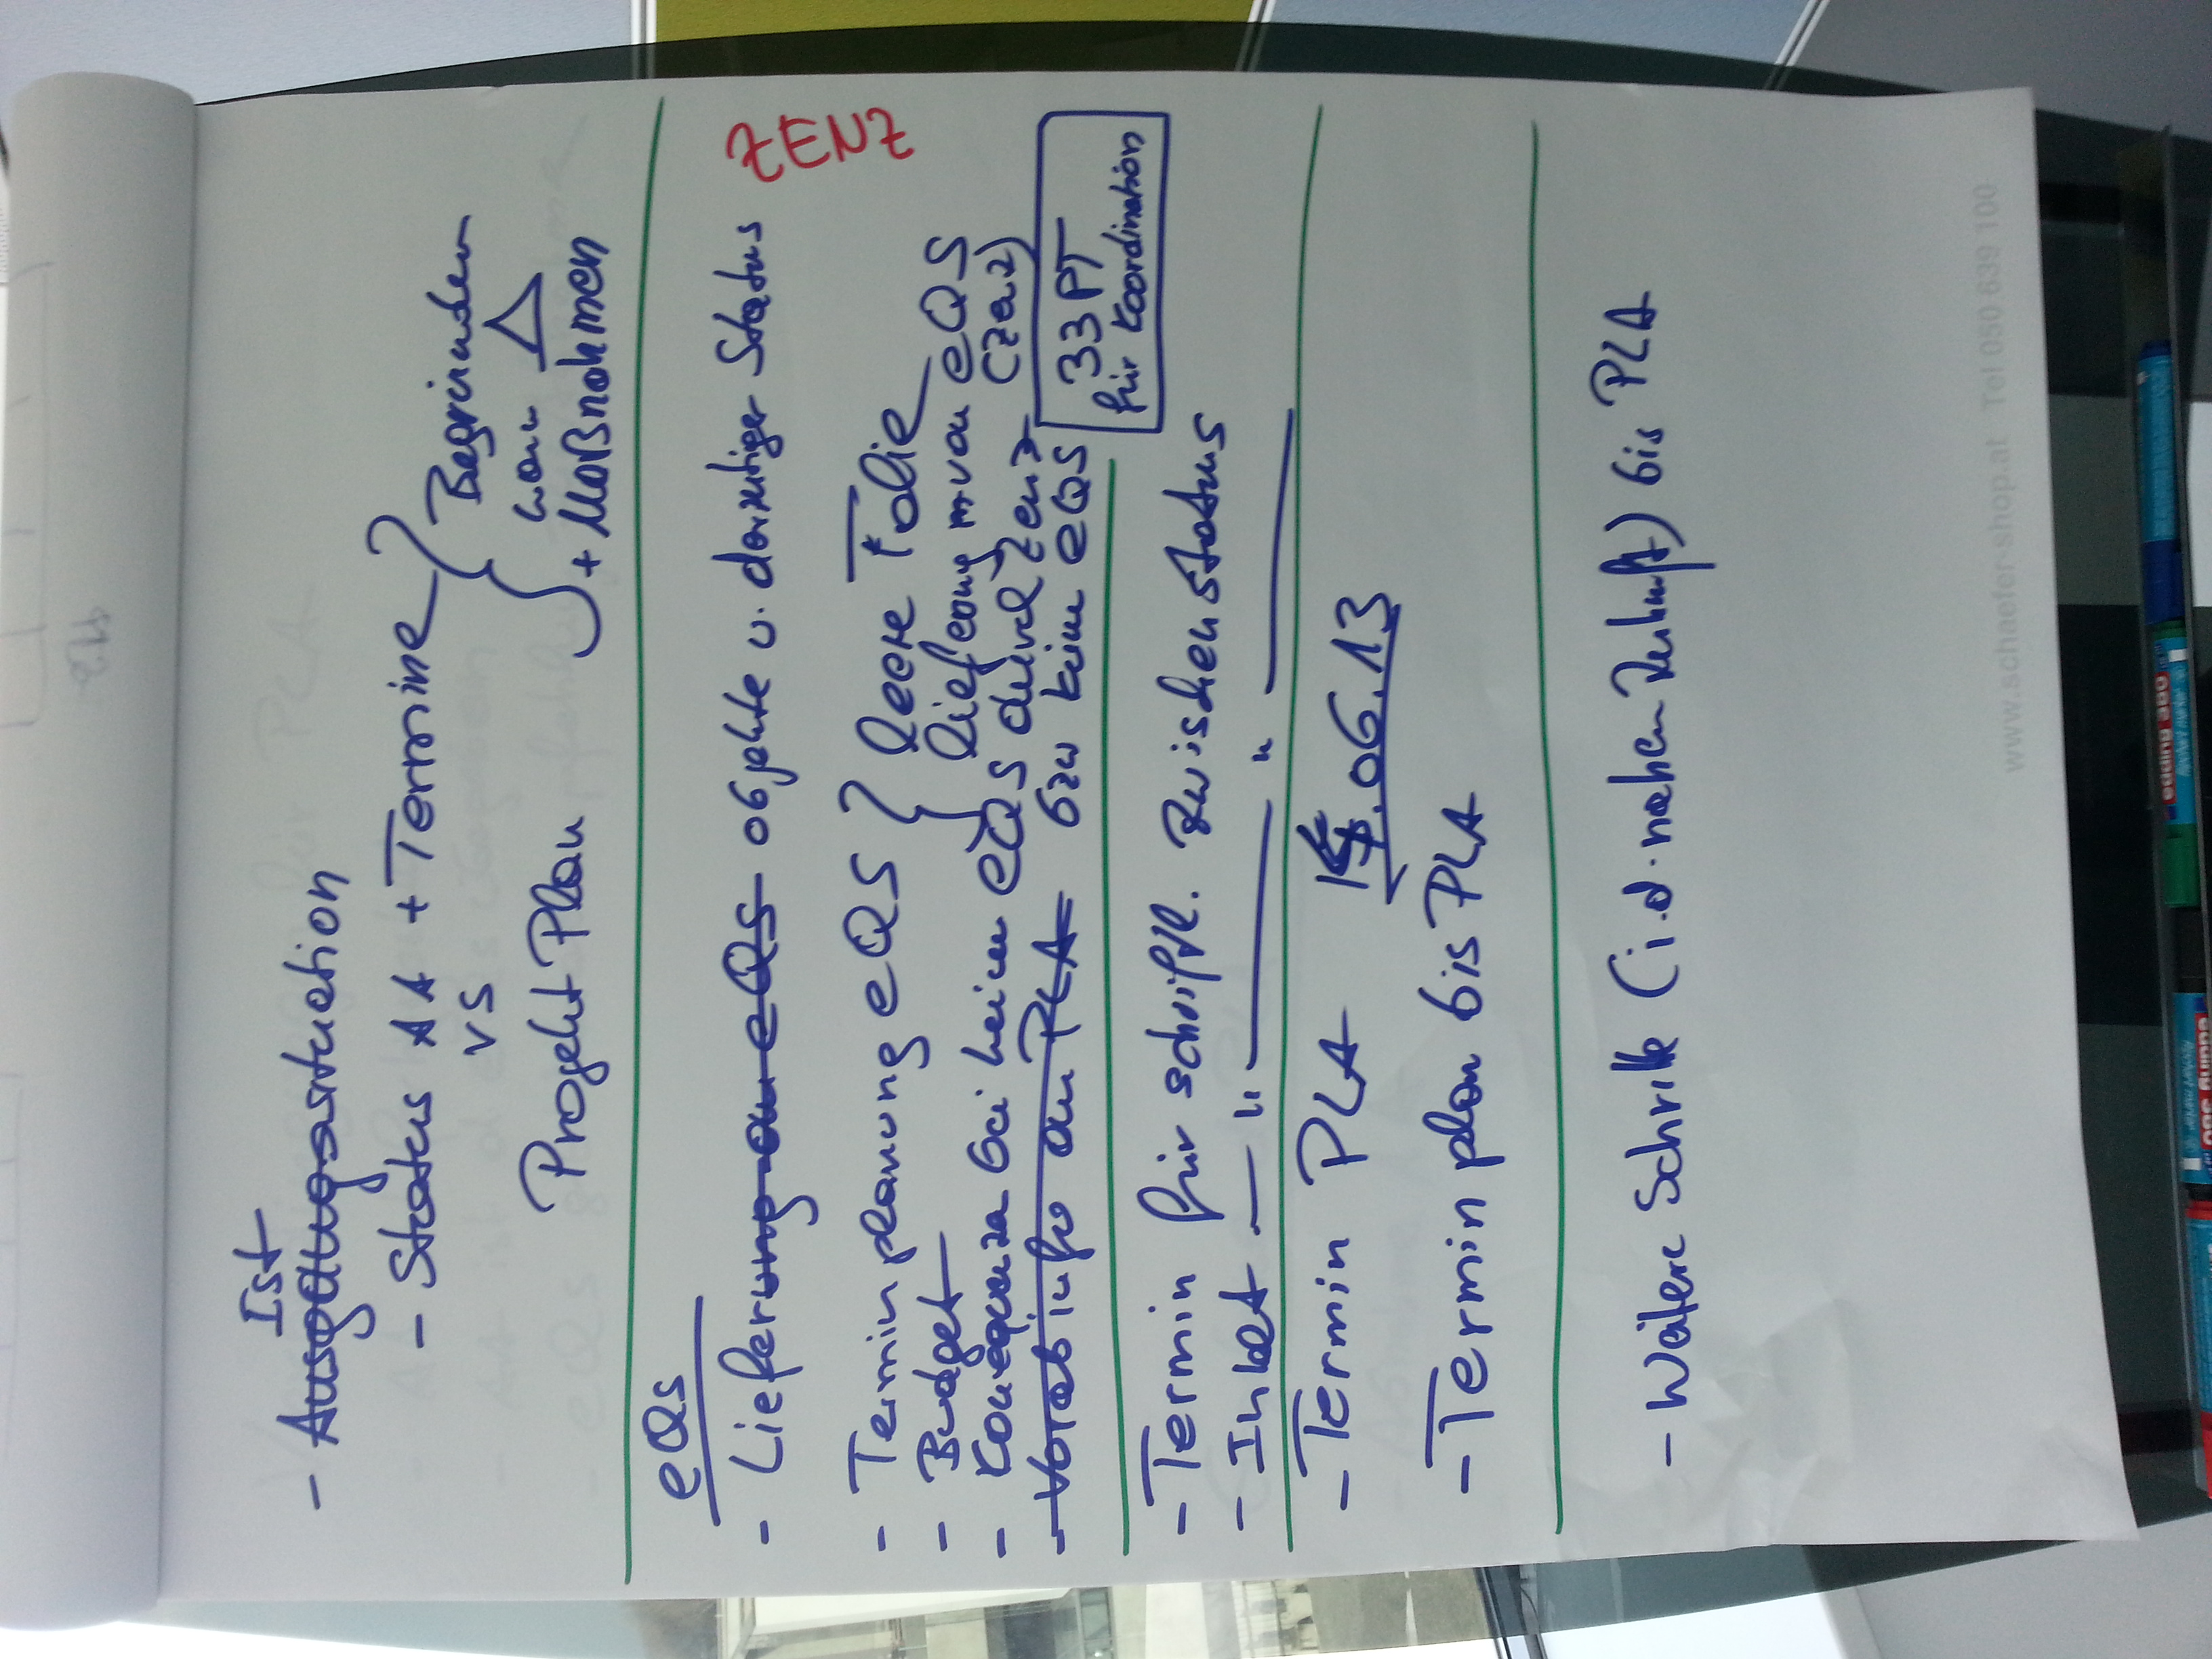 Ist
- Ausgattungssituation
- Status AA + Termine
vs
Projekt Plan
Begründen
wenn Δ
+ Maßnahmen
eQS
ZENZ
- Lieferung an eQS obgleich u. dortiger Status
- Terminplanung eQS
- Budget
leere Folie
Lieferung nur von eQS
- Konsequenz bei keiner eQS durch Zenz
(Zenz)
- Vorabinfo an PLA bzw keine eQS
33 PT
für Koordination
- Termin für schriftl. Zwischenstatus
- Inhalt — " — " —
- Termin PLA .06.13
- Terminplan bis PLA
- Weitere Schritte (i.d. nahen Zukunft) bis PLA
www.schaefer-shop.at Tel 050 639 100
edding 380